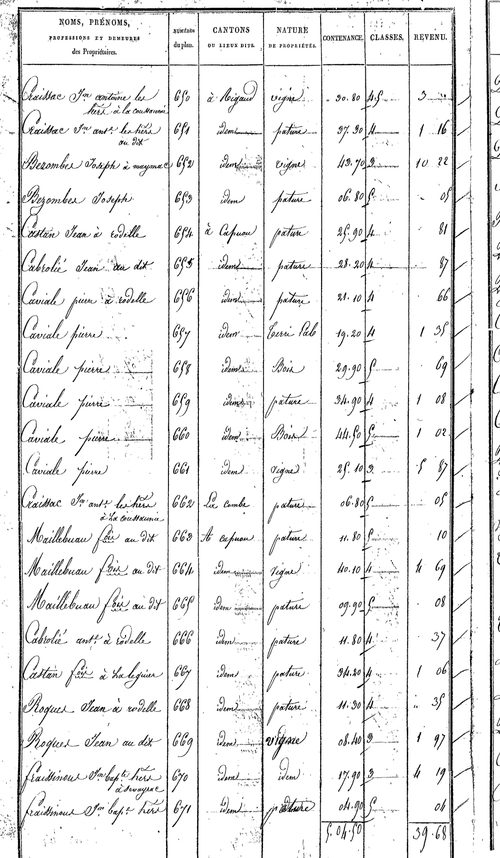 NOMS, PRÉNOMS, PROFESSIONS ET DEMEURES des Propriétaires. | NUMÉROS du plan. | CANTONS OU LIEUX DITS. | NATURE DE PROPRIÉTÉS. | CONTENANCE. | CLASSES. | REVENU.
Craissac Jn antoine les 650 à Rigaud vigne 30.80 4.5 3
hers à la coussanie
Craissac Jn ant.e les hers 651 idem pature 37.30 4 1 16
au dit
Bezombes Joseph à mayrac 652 idem vigne 43.70 3 10 22
Bezombes Joseph 653 idem pature 06.80 5 05
Castan Jean à rodelle 654 à Capuou pature 25.90 4 81
Cabrolié Jean au dit 655 idem pature 28.20 4 87
Caviale pierre à rodelle 656 idem pature 21.10 4 66
Caviale pierre 657 idem Terre Lab 19.20 4 1 35
Caviale pierre 658 idem Bois 29.90 5 69
Caviale pierre 659 idem pature 34.90 4 1 08
Caviale pierre 660 idem Bois 44.50 5 1 02
Caviale pierre 661 idem vigne 25.10 3 5 87
Craissac Jn ant.e les hers 662 La combe pature 06.80 5 05
à La coussanie
Maillebuau fois au dit 663 At capuou pature 11.80 5 10
Maillebuau fois au dit 664 idem vigne 40.10 4 4 69
Maillebuau fois au dit 665 idem pature 09.90 5 08
Cabrolié ant.e à rodelle 666 idem pature 11.80 4 37
Castan fois à Laleguier 667 idem pature 34.20 4 1 06
Roques Jean à rodelle 668 idem pature 11.30 4 35
Roques Jean au dit 669 idem vigne 08.40 3 1 97
fraissinous Jn bap.te hers 670 idem idem 17.90 3 4 19
fraissinous Jn bap.te hers 671 idem pature 04.90 5 04
5.04.50 39.68